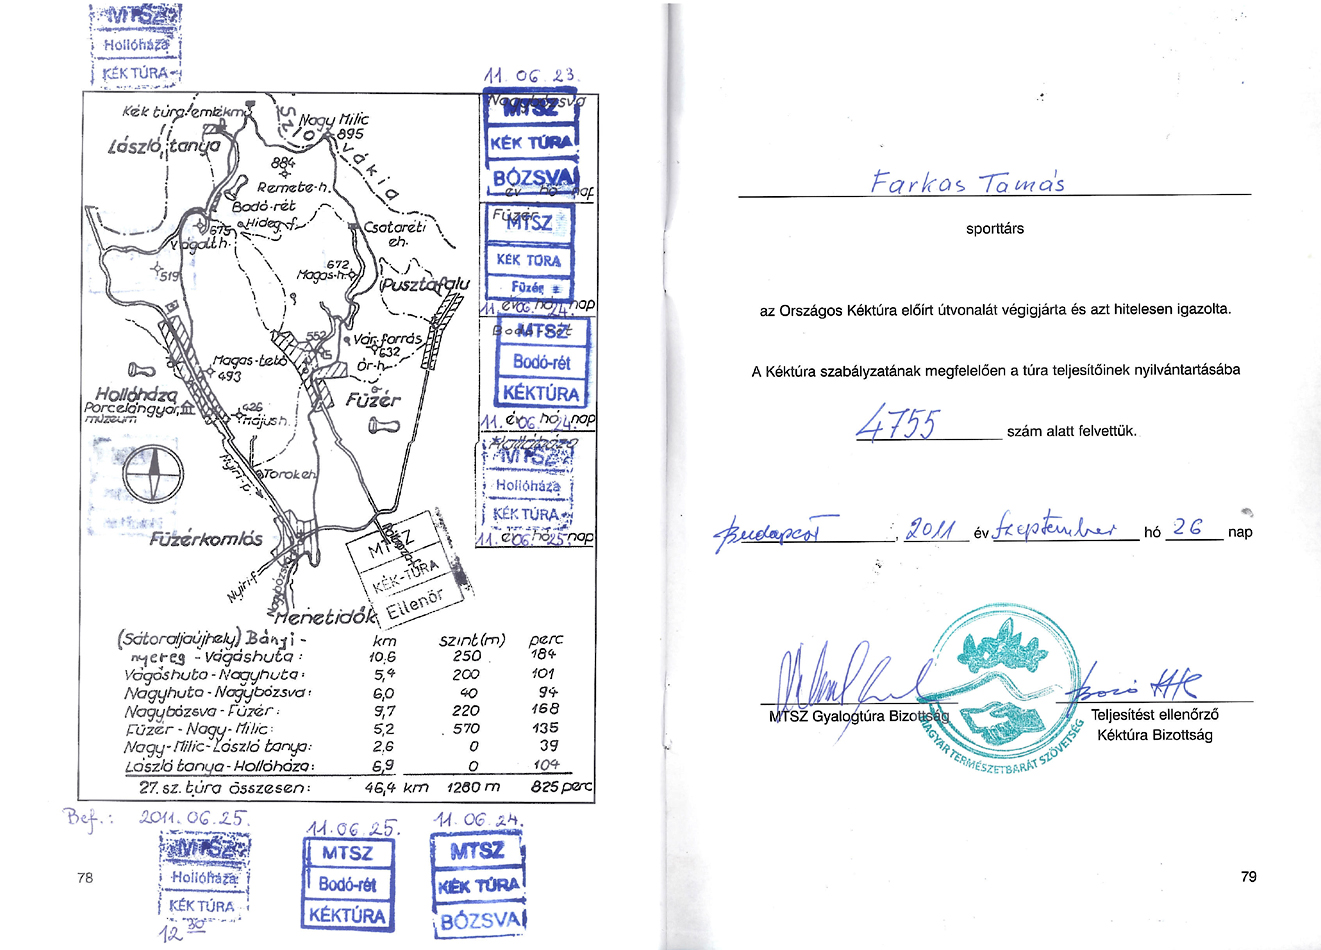 MTSZ
Hollóháza
KÉKTÚRA
11. 06 23.
Nagybózsva
MTSZ
KÉK TÚRA
BÓZSVA
év hó nap
Füzér
MTSZ
KÉK TÚRA
Füzér
11. 06. 24.
év hó nap
Bodó-rét
MTSZ
Bodó-rét
KÉKTÚRA
11. 06. 24.
év hó nap
Hollóháza
MTSZ
Hollóháza
KÉK TÚRA
11. 06. 25.
év hó nap
Kék túra emlékmű
Szlovákia
Nagy Milic
895
László tanya
884
Remete-h.
Bodó-rét
Hideg-f.
675
Vágott h.
Csataréti
eh.
519
672
Magas-h.
Pusztafalu
552
Vár-forrás
632
Őr-h.
Magas-tető
493
Hollóháza
Porcelángyár,
múzeum
426
Május h.
Füzér
Nyíri-p.
Torok eh.
Füzérkomlós
Nyíri-f.
Nagybózsva
MTSZ
KÉK-TÚRA
Ellenőr
Menetidők
(Sátoraljaújhely) Bányi- km szint(m) perc
nyereg - Vágáshuta: 10,6 250 184
Vágáshuta - Nagyhuta: 5,4 200 101
Nagyhuta - Nagybózsva: 6,0 40 94
Nagybózsva - Füzér: 9,7 220 168
Füzér - Nagy-Milic: 5,2 570 135
Nagy-Milic-László tanya: 2,6 0 39
László tanya-Hollóháza: 6,9 0 104
27. sz. túra összesen: 46,4 km 1280 m 825 perc
Bef.: 2011. 06. 25.
MTSZ
Hollóháza
KÉK TÚRA
12 30
11. 06. 25.
MTSZ
Bodó-rét
KÉKTÚRA
11. 06. 24.
MTSZ
KÉK TÚRA
BÓZSVA
78
Farkas Tamás
sporttárs
az Országos Kéktúra előírt útvonalát végigjárta és azt hitelesen igazolta.
A Kéktúra szabályzatának megfelelően a túra teljesítőinek nyilvántartásába
4755 szám alatt felvettük.
Budapest, 2011 év Szeptember hó 26 nap
MTSZ Gyalogtúra Bizottság
Teljesítést ellenőrző
Kéktúra Bizottság
MAGYAR TERMÉSZETBARÁT SZÖVETSÉG
79